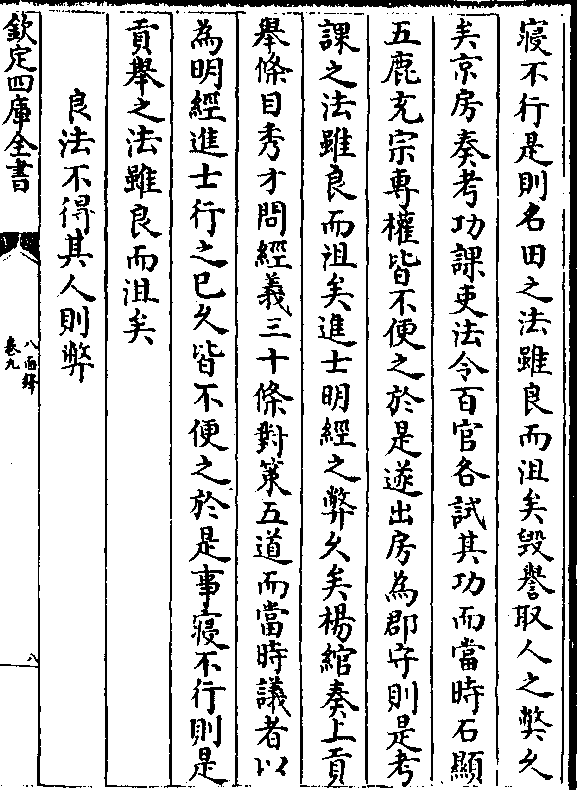 寢不行是則名田之法雖良而沮矣毀譽取人之弊乆
矣京房奏考功課吏法令百官各試其功而當時石顯
五鹿充宗專權皆不便之於是遂出房為郡守則是考
課之法雖良而沮矣進士明經之弊乆矣楊綰奏上貢
舉條目秀才問經義三十條對策五道而當時議者以
為明經進士行之已乆皆不便之於是事寢不行則是
貢舉之法雖良而沮矣
良法不得其人則弊
欽定四庫全書
八面鋒
卷九
八